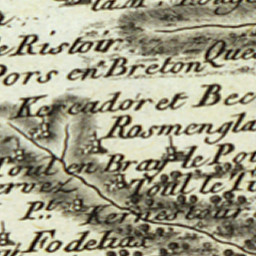 Ristoir
Pors en Breton
Kercador et Bec
Rosmengla
Toul en Bray le Po
Toul le
ervez
P.t Kernestour
Fodelias